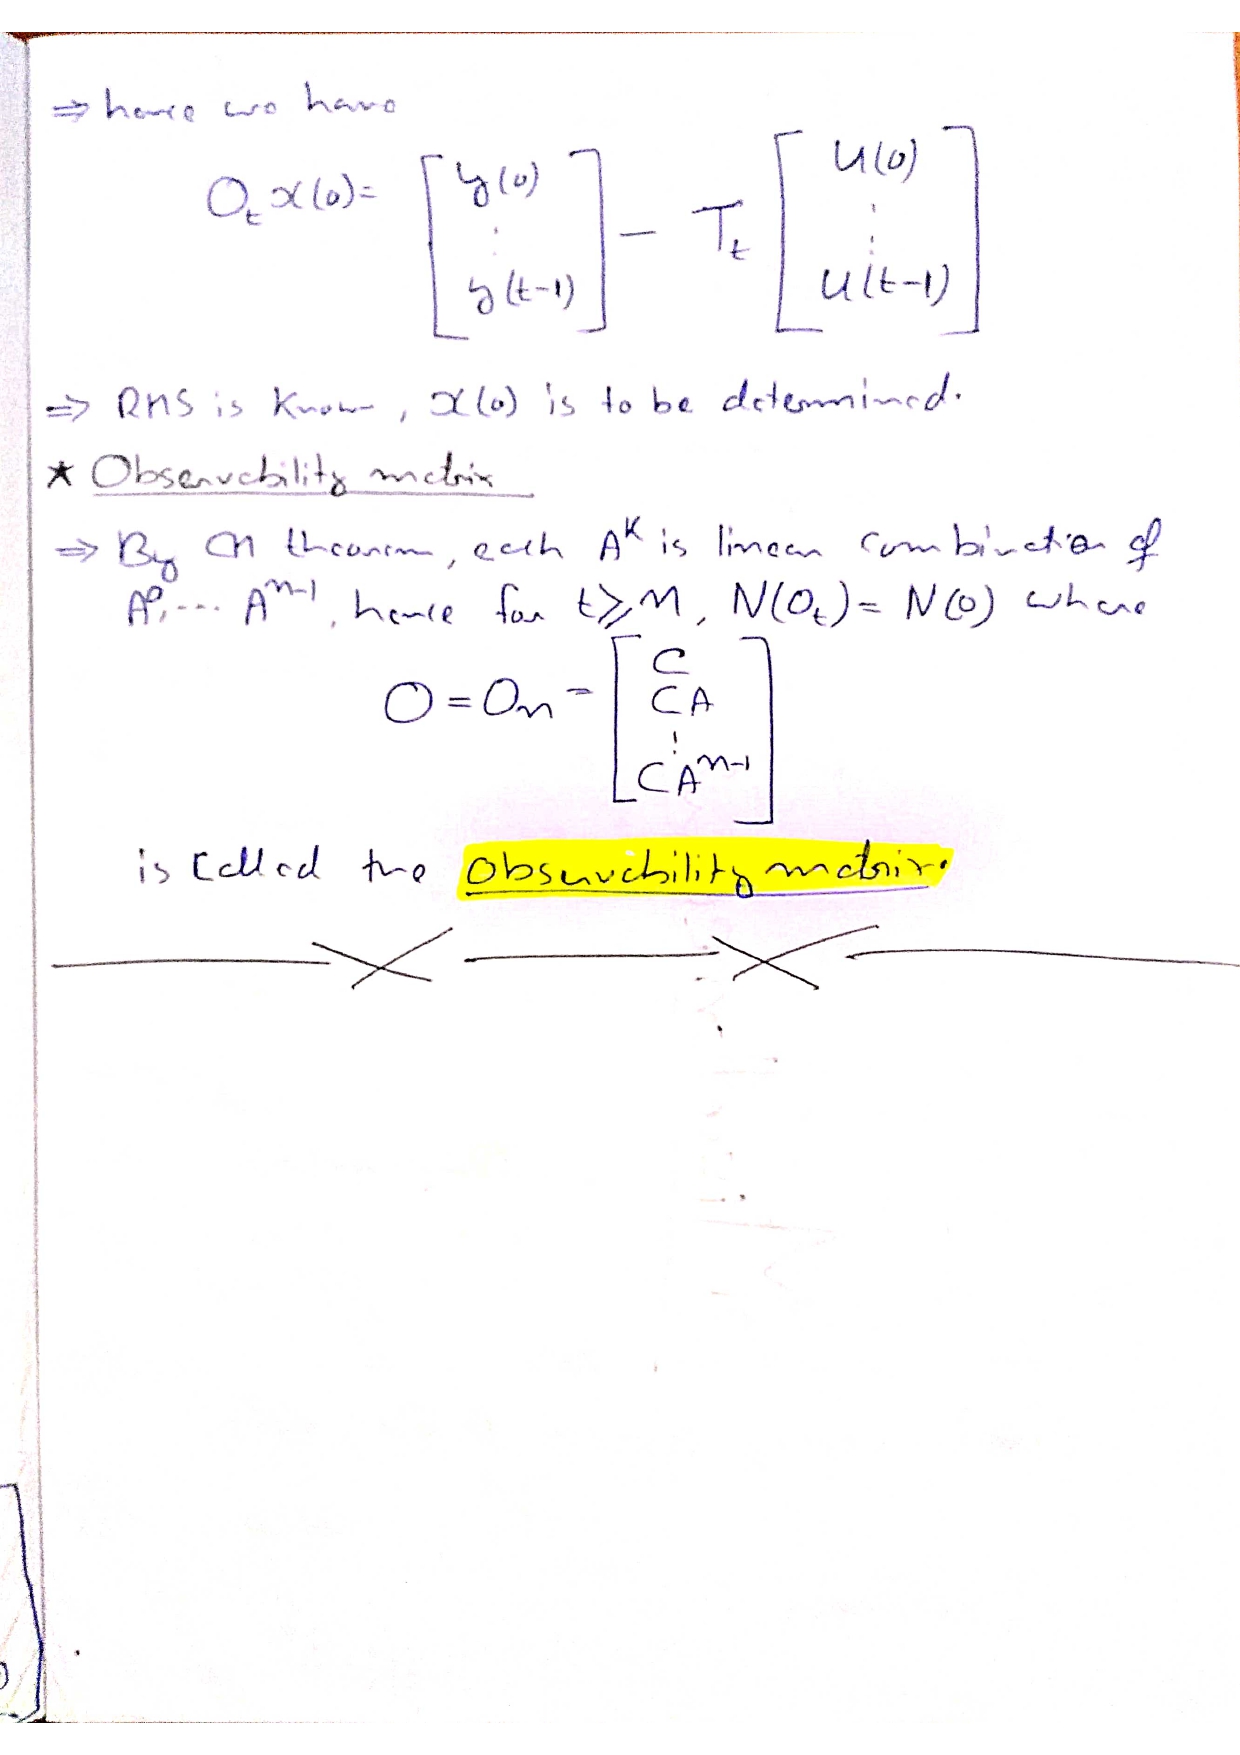 ⇒ hence we have
O_t x(0) = [ y(0) ⋮ y(t-1) ] - T_t [ u(0) ⋮ u(t-1) ]
⇒ RHS is known, x(0) is to be determined.
★ Observability matrix
⇒ By CH theorem, each A^K is linear combination of
A^0, ... A^{n-1}, hence for t ≥ n, N(O_t) = N(O) where
O = O_n = [ C CA ⋮ CA^{n-1} ]
is called the observability matrix.